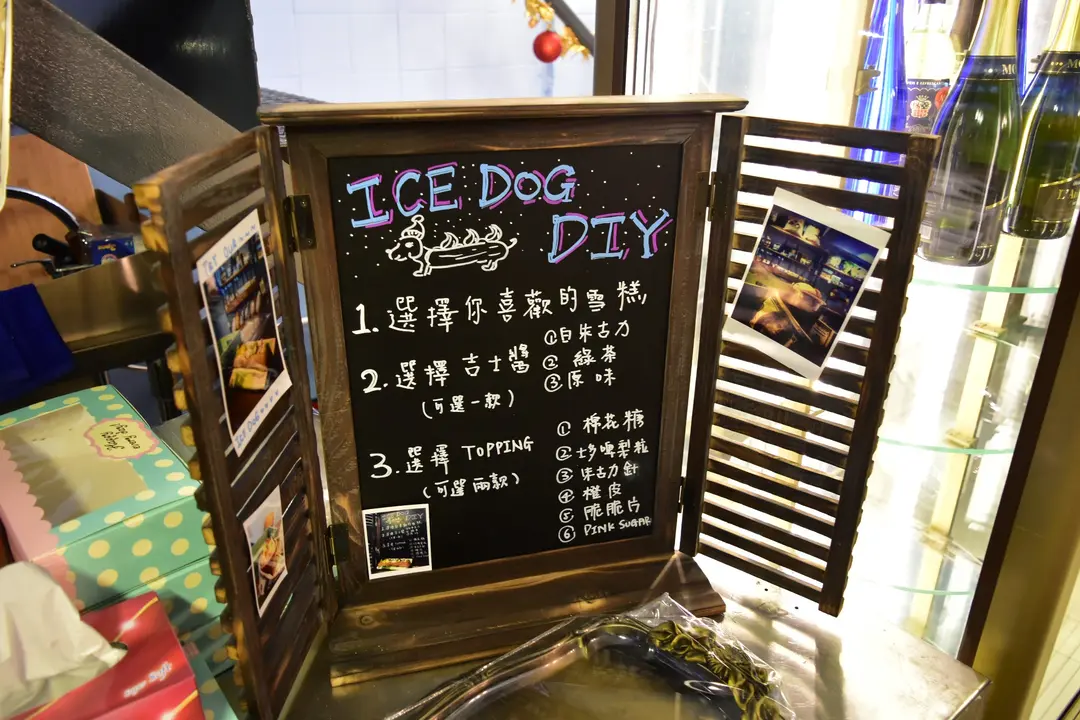 ICE DOG
DIY
1. 選擇你喜歡的雪糕
2. 選擇吉士醬
(可選一款)
①白朱古力
②綠茶
③原味
3. 選擇 TOPPING
(可選兩款)
① 棉花糖
②士多啤梨粒
③朱古力針
④橙皮
⑤脆脆片
⑥ PINK SUGAR
TRY OUR
ICE DOG